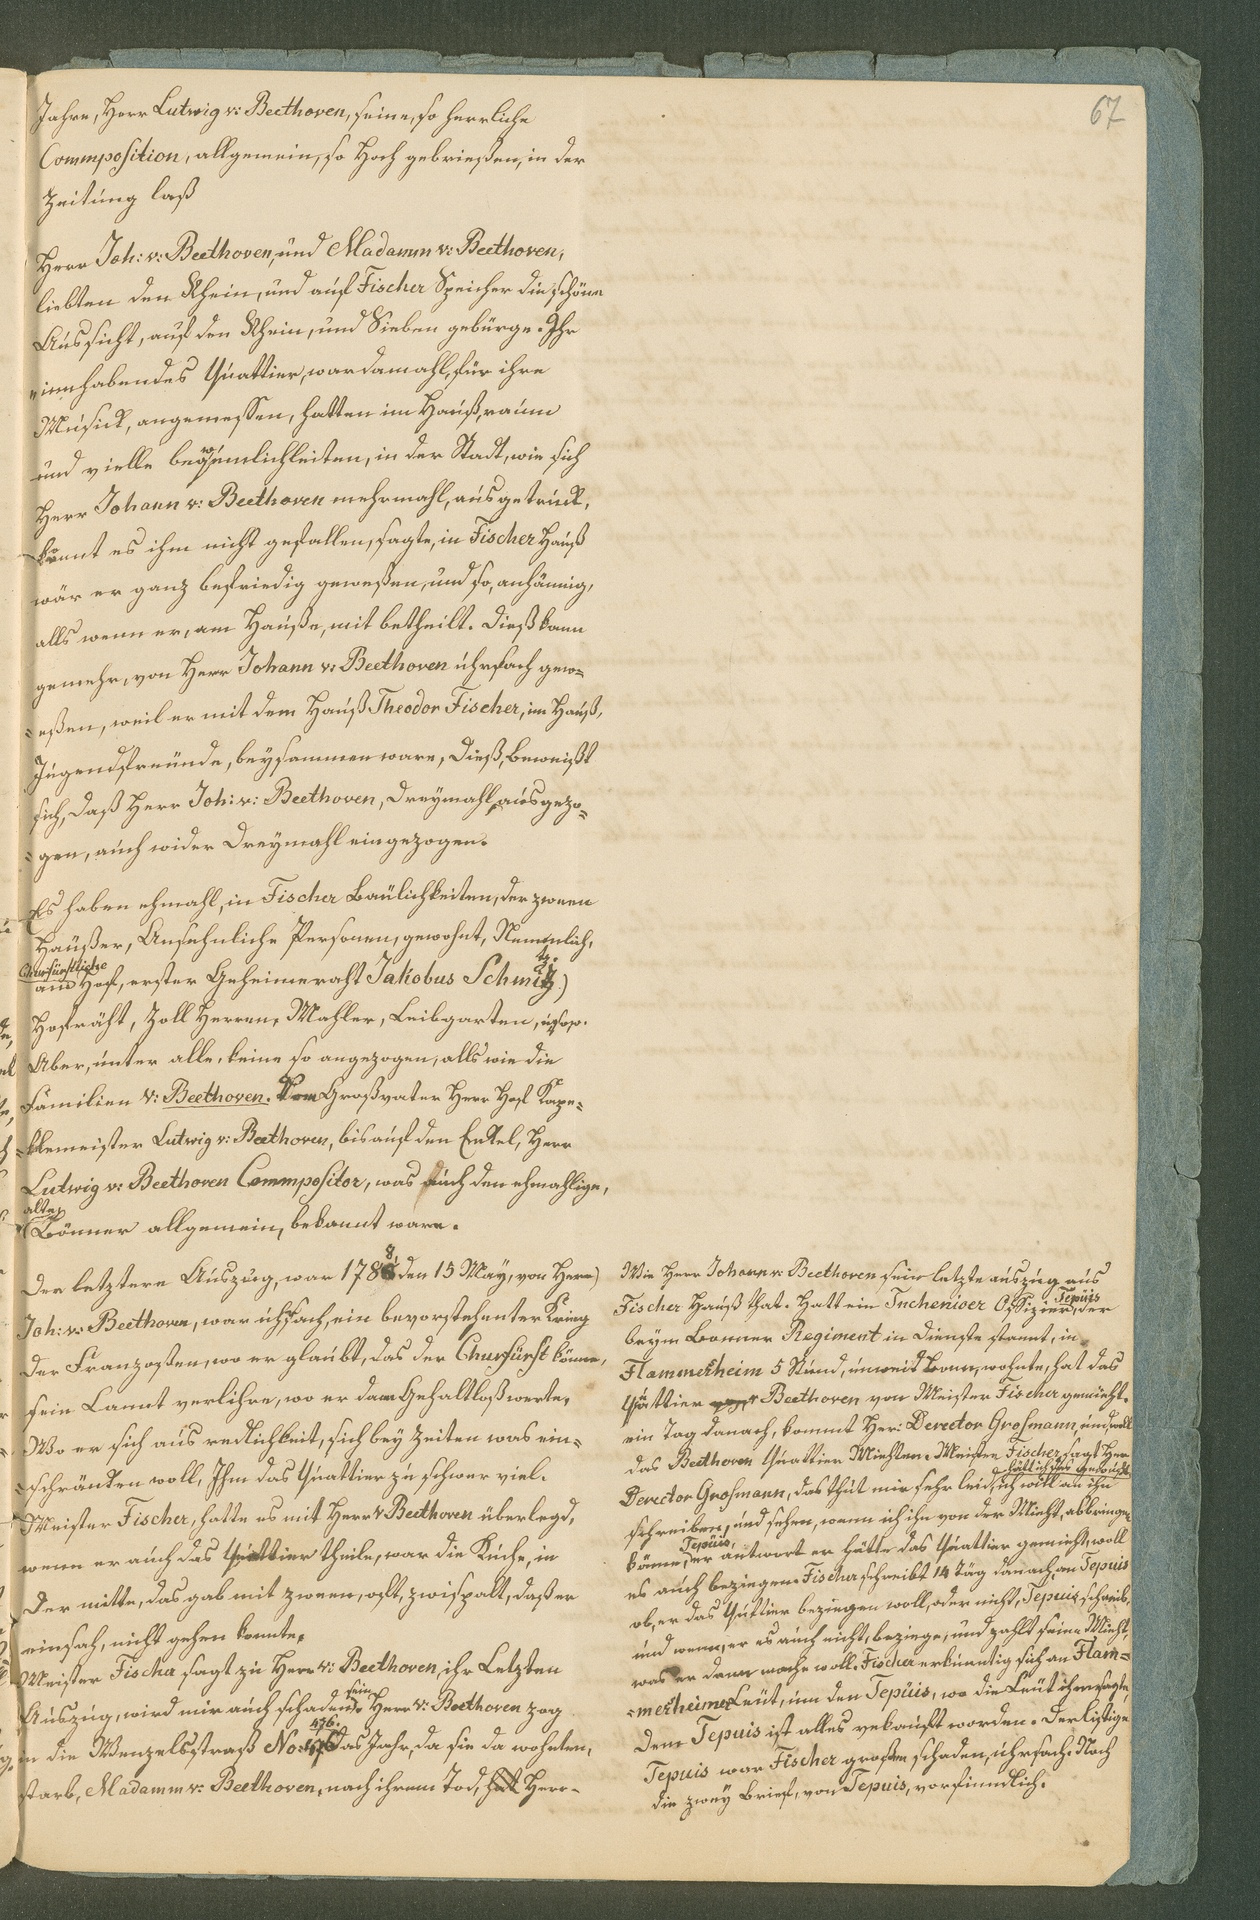 67
Jahre, Herr Lutwig v: Beethoven, seine, so herrliche
Commposition, allgemein, so hoch gebrießen, in der
Zeitung laß
Herr Joh: v: Beethoven, und Madamm v: Beethoven,
liebten den Rhein, und auf Fischer Speicher die schöne
Aussicht, auf den Rhein, und Sieben gebürge. Ihr
innhabendes Quattier, war damahl, für ihre
Musick, angemessen, hatten im Hauß, raum
und vielle beqümlichleiten, in der Stadt, wie sich
Herr Johann v: Beethoven mehrmahl, ausgetrück,
könnt es ihm nicht gefallen, sagte, in Fischer Hauß
wär er ganz befriedig geweßen, und so, anhännig,
alls wenn er, am Hauße, mit betheilt. Dieß kann
gemehr, von Herr Johann v: Beethoven uhrsach gew=
=eßen, weil er mit dem Hauß Theodor Fischer, im Hauß,
Jugendfreünde, beysammen ware, Dieß, beweißt
sich, daß Herr Joh: v: Beethoven, Dreymahl, ausgezo=
=gen, auch wider Dreymahl eingezogen.
Es haben ehmahl, in Fischer Baülichkeiten, der zween
Haüßer, Ansehnliche Personen, gewohnt, Nemmlich,
Churfürstliche
am Hof, erster Geheimeraht Jakobus Schmitz)
Hofräht, Zoll Herren, Mahler, Leibgarten, usow.
Aber, unter alle, keine so angezogen, alls wie die
Familien v: Beethoven. Vom Großvater Herr Hof Kape=
=llemeister Lutwig v: Beethoven, bis auf den Enkel, Herr
Lutwig v: Beethoven Commpositor, was auch den ehmahlige,
alte,
Bönner allgemein, bekannt ware.
Der letztere Auszug, war 1788 den 15 May, von Herr)
Joh: v: Beethoven, war uhrsach, ein bevorstehenter Krieg
der Franzosten, wo er glaubt, das der Churfürst könne,
sein Lannt verlihre, wo er dann Gehaltloß werte,
Wo er sich aus redlichkeit, sich bey Zeiten was ein=
=schränken woll, Ihm das Quattier zu schwer viel.
Meister Fischer, hatte es mit Herr v Beethoven überlegd,
wenn er auch das Quattier theile, war die Küche, in
der mitte, das gab mit zween, oft, zwispalt, daß er
einsah, nicht gehen konnte,
Meister Fischer sagt zu Herr v: Beethoven, ihr Letzten
Auszug, wird mir auch schaden sein, Herr v: Beethoven zog
476.
in die Wenzelsstraß No: das Jahr, da sie da wohnten,
starb, Madamm v: Beethoven, nach ihrem Tod, hat Herr-
Wie Herr Johann v: Beethoven sein letzte auszug aus
Fischer Hauß that. Hatt ein Inchenioer Offizier, Tepüis der
beym Bonner Regiment in dienste stannt, in
Flammerheim 5 Stund, unweid Bonn, wohnte, hat das
Quattier Beethoven von Meister Fischer gemieht.
ein Tag danach, kommt Her: Derector Großmann, und woll
das Beethoven Quattier Miehten. Meister Fischer sagt Herr
Derector Großmann, das thut mir sehr leid, ich will an ihn
schreiben, und sehen, wenn ich ihn von der Mieht, abbringen
Tepüis,
könne, er antwort er hätte das Quattier gemieht, woll
es auch beziegen. Fischer schreibt 14 Täg danach an Tepuis
ob, er das Quttier beziegen woll, oder nicht, Tepuis schreib,
und wenn, er es auch nicht, beziege, und zahlt seine Mieht,
was er dann mache woll. Fischer erkunntig sich an Flam=
=merheimer Leüt, um den Tepüis, wo die Leüt ihm sagte,
dem Tepuis ist alles vekauft worden. Der listige
Tepuis war Fischer großen schaden, uhrsach. Noch
die zwey Brief, von Tepuis, vorfinndlich.